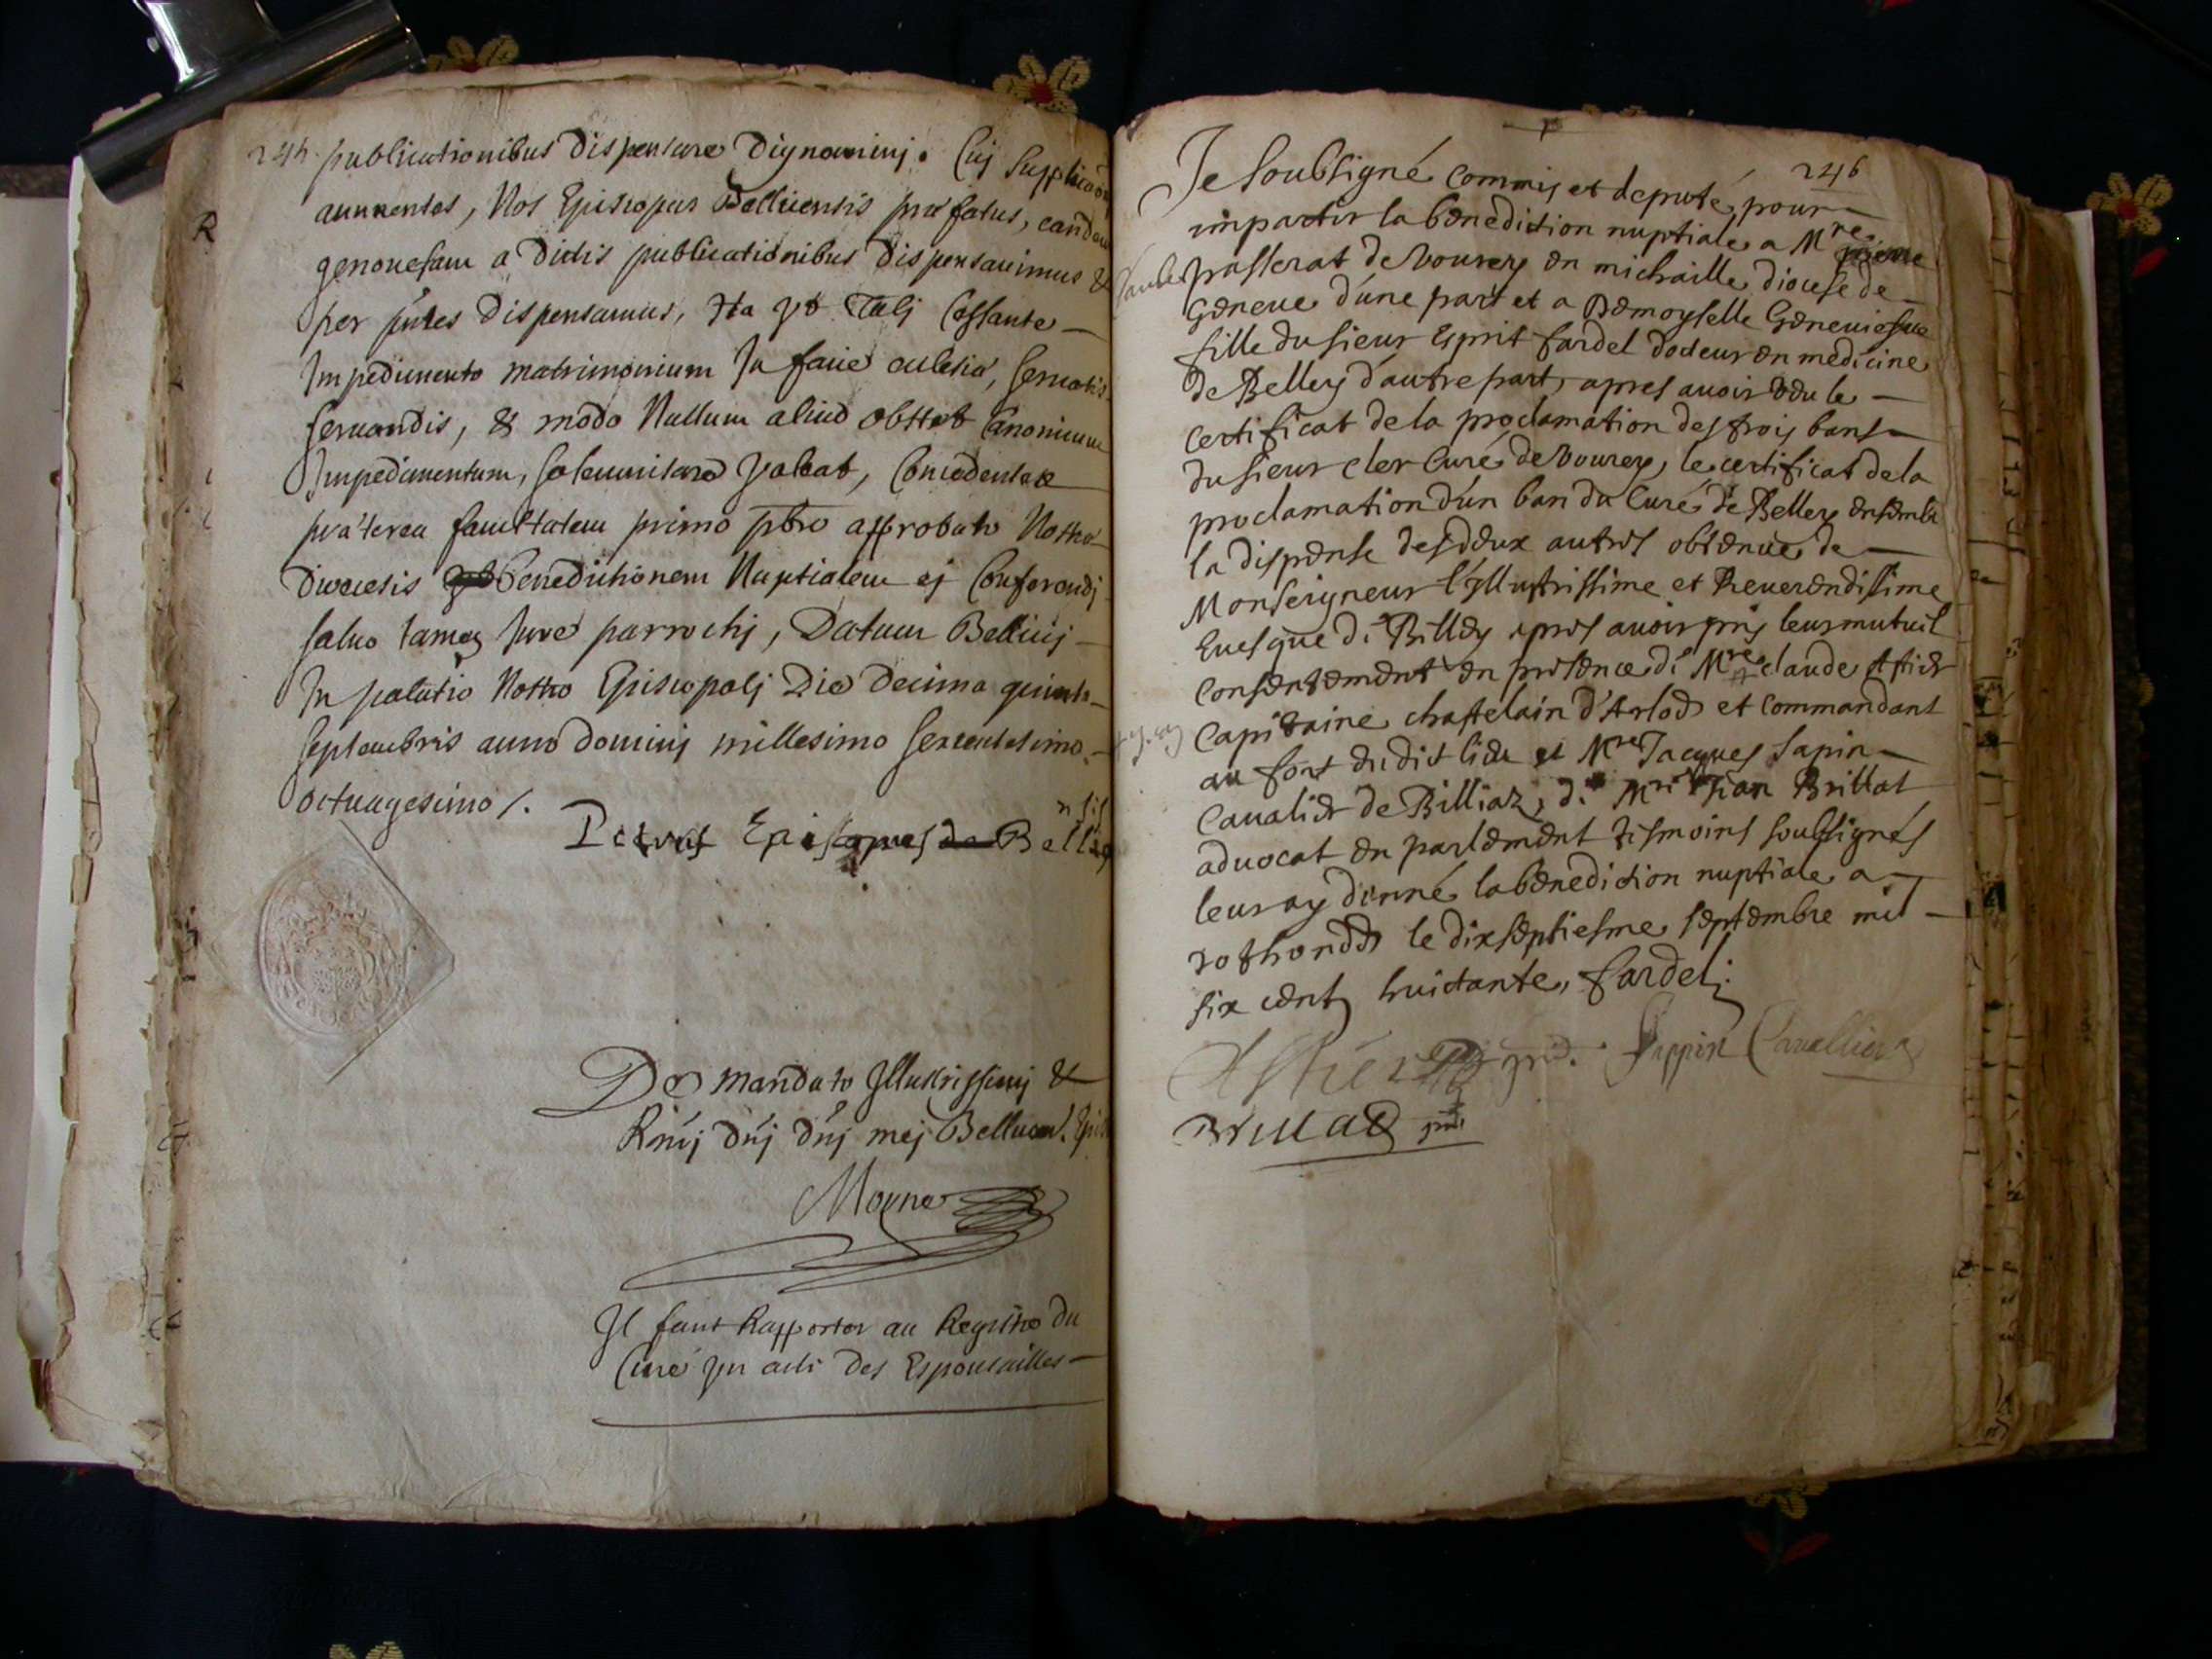 245. publicationibus dispensare dignaremur. Cuj supplicaoni
annuentes, Nos Episcopus Bellicensis præfatus, eandem
genovefam a dictis publicationibus dispensavimus &
per pñtes dispensamus, Ita vt tali Cessante
Impedimento matrimonium In facie ecclesiæ, servatis
servandis, & modo Nullum aliud obstet Canonicum
Impedimentum, solemnisare valeat, Concedentes
præterea facultatem primo pbro approbato Nostræ
diocesis benedictionem Nuptialem ej Conferendj
salvo tamen Jure parrochj, Datum Bellicij
In palatio Nostro Episcopalj Die decima quinta
septembris anno dominj millesimo sexcentesimo
octuagesimo /.
Petrus Episcopus Bellicensis
De mandato Jllustrissimj &
Rmj dñj dñj mej Bellicen. Epi
Moyne
Jl faut Rapporter au Registre du
Curé Jcy acte des Espousailles
246
Je soubsigné commis et deputé pour
impartir la benediction nuptiale a Mre
passerat de vourey en michaille diocese de
Geneve d'une part et a Damoyselle Geneviefve
fille du sieur Esprit fardel docteur en medicine
de Belley d'autre part, apres avoir veu le
certificat de la proclamation des trois bans
du sieur cler Curé de vourey, le certificat de la
proclamation d'un ban du Curé de Belley ensemble
la dispense des deux autres obtenüe de
Monseigneur l'Jllustrissime et Reverendissime
Evesque de Belley apres avoir pris leur mutuel
consentement en presence de Mre claude Astier
Capitaine chastelain d'Arlod et commandant
au fort du dict lieu et Mre Jacques Sapin
Cavalier de Billiaz, de Mre Jean Brillat
advocat en parlement tesmoins soubsignés
leur ay donné la benediction nuptiale a
rothonod le dixseptiesme septembre mil
six cent huictante, fardel.
Astier pnt. Sappin Cavallier
Brillat pnt